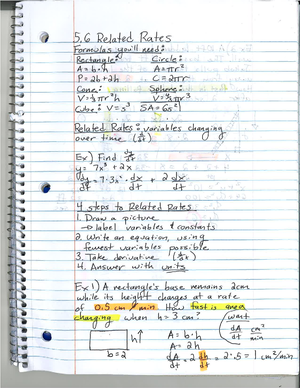 5.6 Related Rates
Formulas you'll need:
Rectangle: Circle:
A = b·h A = πr²
P = 2b + 2h C = 2πr
Cone: Sphere:
V = ⅓πr²h V = 4/3πr³
Cube: V = s³ SA = 6s²
Related Rates: variables changing
over time (d/dt)
Ex) Find dy/dt
y = 7x³ + 2x
dy/dt = 7·3x² · dx/dt + 2 dx/dt
4 steps to Related Rates
1. Draw a picture
→ label variables & constants
2. Write an equation, using
fewest variables possible
3. Take derivative (d/dt)
4. Answer with units
Ex 1) A rectangle's base remains 2cm
while its height changes at a rate
of 0.5 cm/min. How fast is area
changing when h = 3 cm?
h↑
b = 2
A = b·h
A = 2h
dA/dt = 2 dh/dt = 2·.5 = 1 cm²/min
want
dA/dt cm²/min